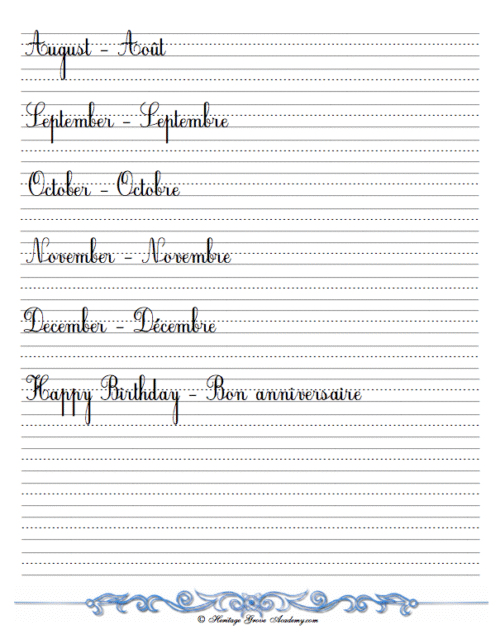 August - Août
September - Septembre
October - Octobre
November - Novembre
December - Décembre
Happy Birthday - Bon anniversaire
© Heritage Grove Academy.com